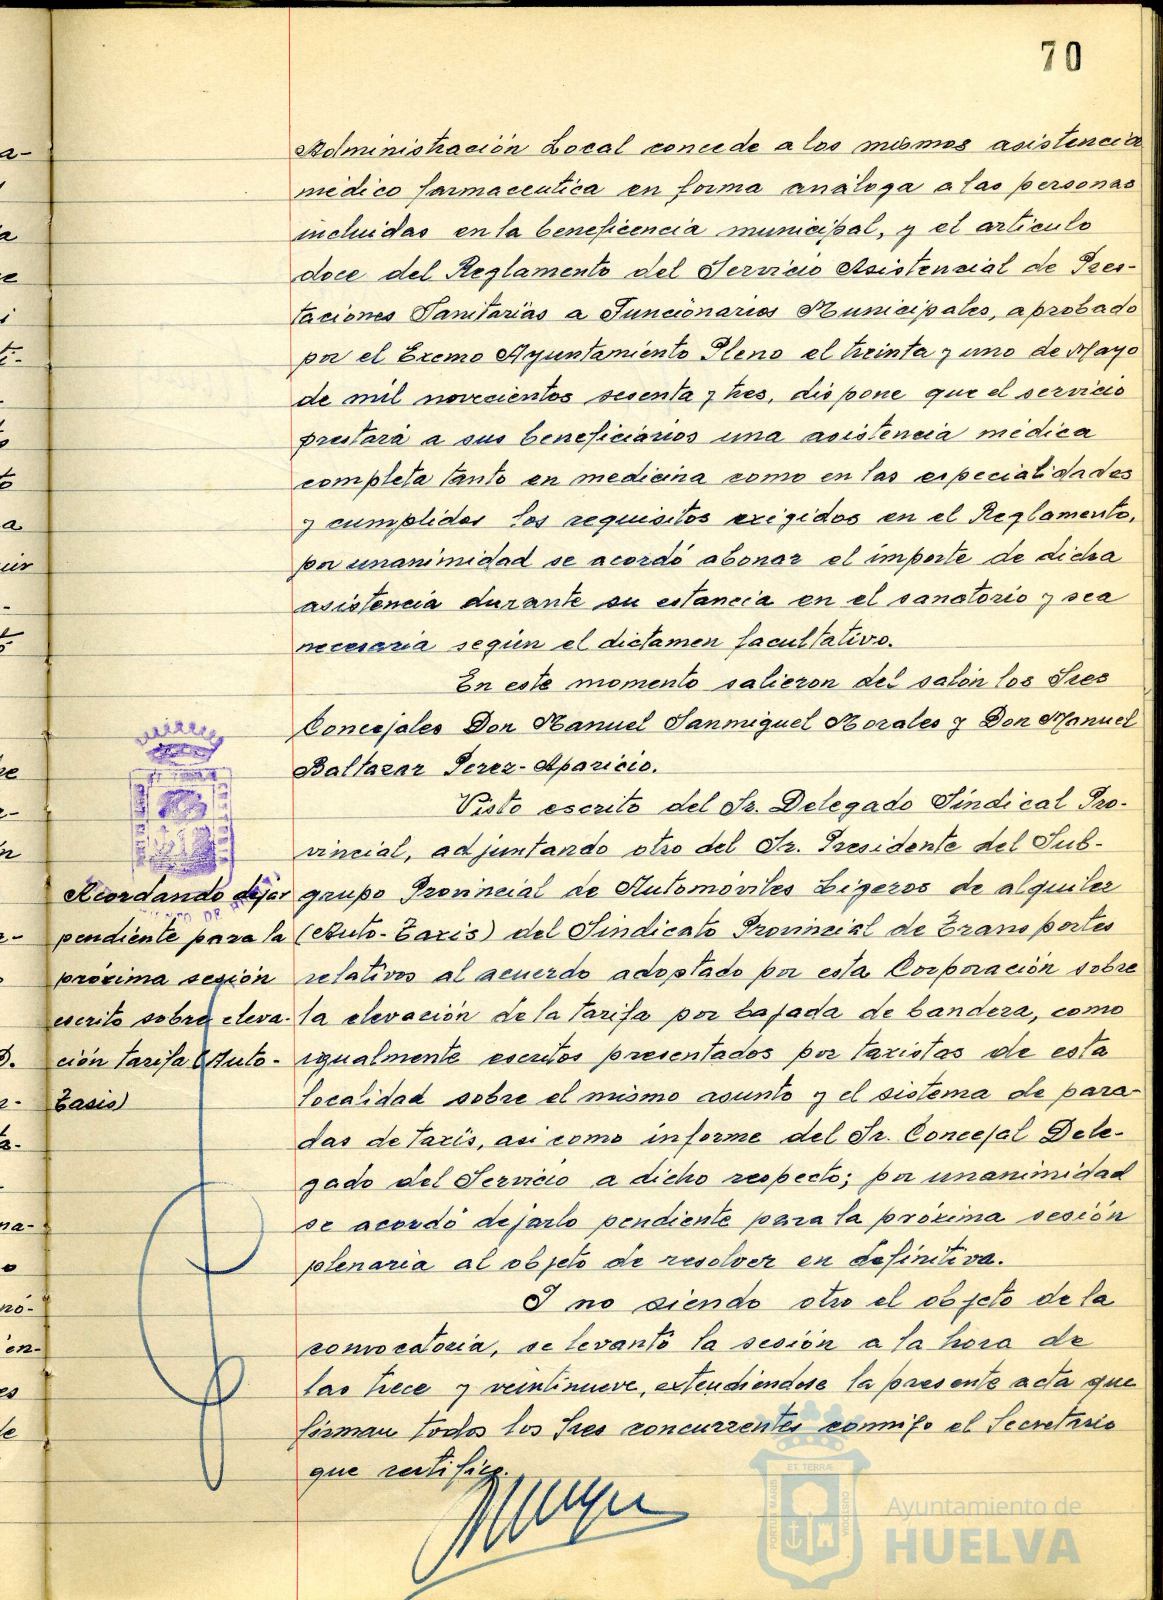 70
Administración Local concede a los mismos asistencia
médico farmaceutica en forma análoga a las personas
incluidas en la beneficencia municipal, y el artículo
doce del Reglamento del Servicio Asistencial de Pres-
taciones Sanitarias a Funcionarios Municipales, aprobado
por el Excmo Ayuntamiento Pleno el treinta y uno de Mayo
de mil novecientos sesenta y tres, dispone que el servicio
prestará a sus beneficiarios una asistencia médica
completa tanto en medicina como en las especialidades
y cumplidos los requisitos exigidos en el Reglamento,
por unanimidad se acordó abonar el importe de dicha
asistencia durante su estancia en el sanatorio y sea
necesaria según el dictamen facultativo.
En este momento salieron del salón los Sres
Concejales Don Manuel Sanmiguel Morales y Don Manuel
Baltazar Perez-Aparicio.
Visto escrito del Sr. Delegado Sindical Pro-
vincial, adjuntando otro del Sr. Presidente del Sub-
grupo Provincial de Automóviles Ligeros de alquiler
(Auto-Taxis) del Sindicato Provincial de Transportes
relativos al acuerdo adoptado por esta Corporación sobre
la elevación de la tarifa por bajada de bandera, como
igualmente escritos presentados por taxistas de esta
localidad sobre el mismo asunto y el sistema de para-
das de taxis, asi como informe del Sr. Concejal Dele-
gado del Servicio a dicho respecto; por unanimidad
se acordó dejarlo pendiente para la próxima sesión
plenaria al objeto de resolver en definitiva.
Y no siendo otro el objeto de la
convocatoria, se levantó la sesión a la hora de
las trece y veintinueve, extendiendose la presente acta que
firman todos los Sres concurrentes conmigo el Secretario
que certifico.
Acordando dejar
pendiente para la
próxima sesión
escrito sobre eleva-
ción tarifa (Auto-
Taxis)
PORTUS MARIS
ET TERRÆ
CUSTODIA
Ayuntamiento de
HUELVA